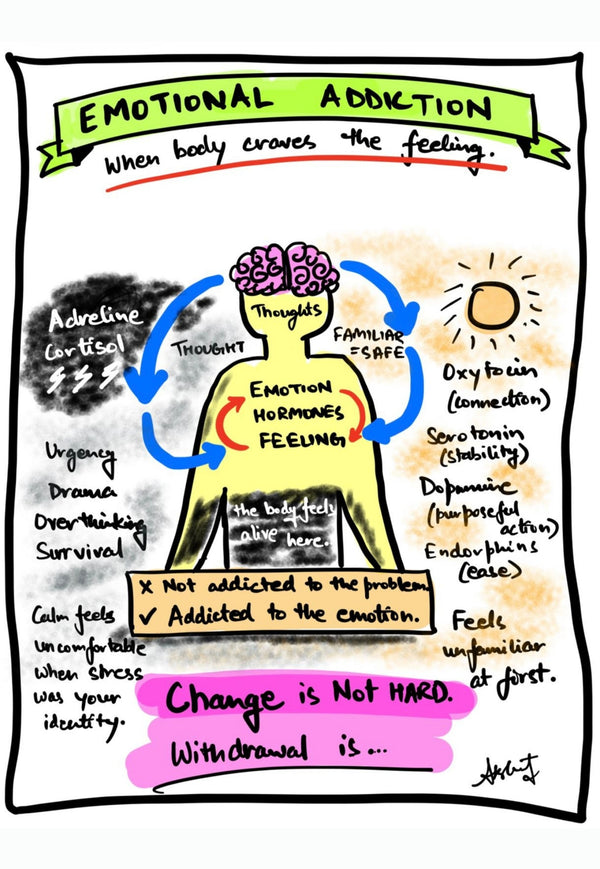 EMOTIONAL ADDICTION
When body craves the feeling.
Adreline
Cortisol
Urgency
Drama
Overthinking
Survival
Calm feels
uncomfortable
when stress
was your
identity.
Thoughts
THOUGHT
FAMILIAR
=SAFE
EMOTION
HORMONES
FEELING
the body feels
alive here.
x Not addicted to the problem.
✓ Addicted to the emotion.
Oxytocin
(connection)
Serotonin
(stability)
Dopamine
(purposeful
action)
Endorphins
(ease)
Feels
unfamiliar
at first.
Change is Not HARD.
Withdrawal is...